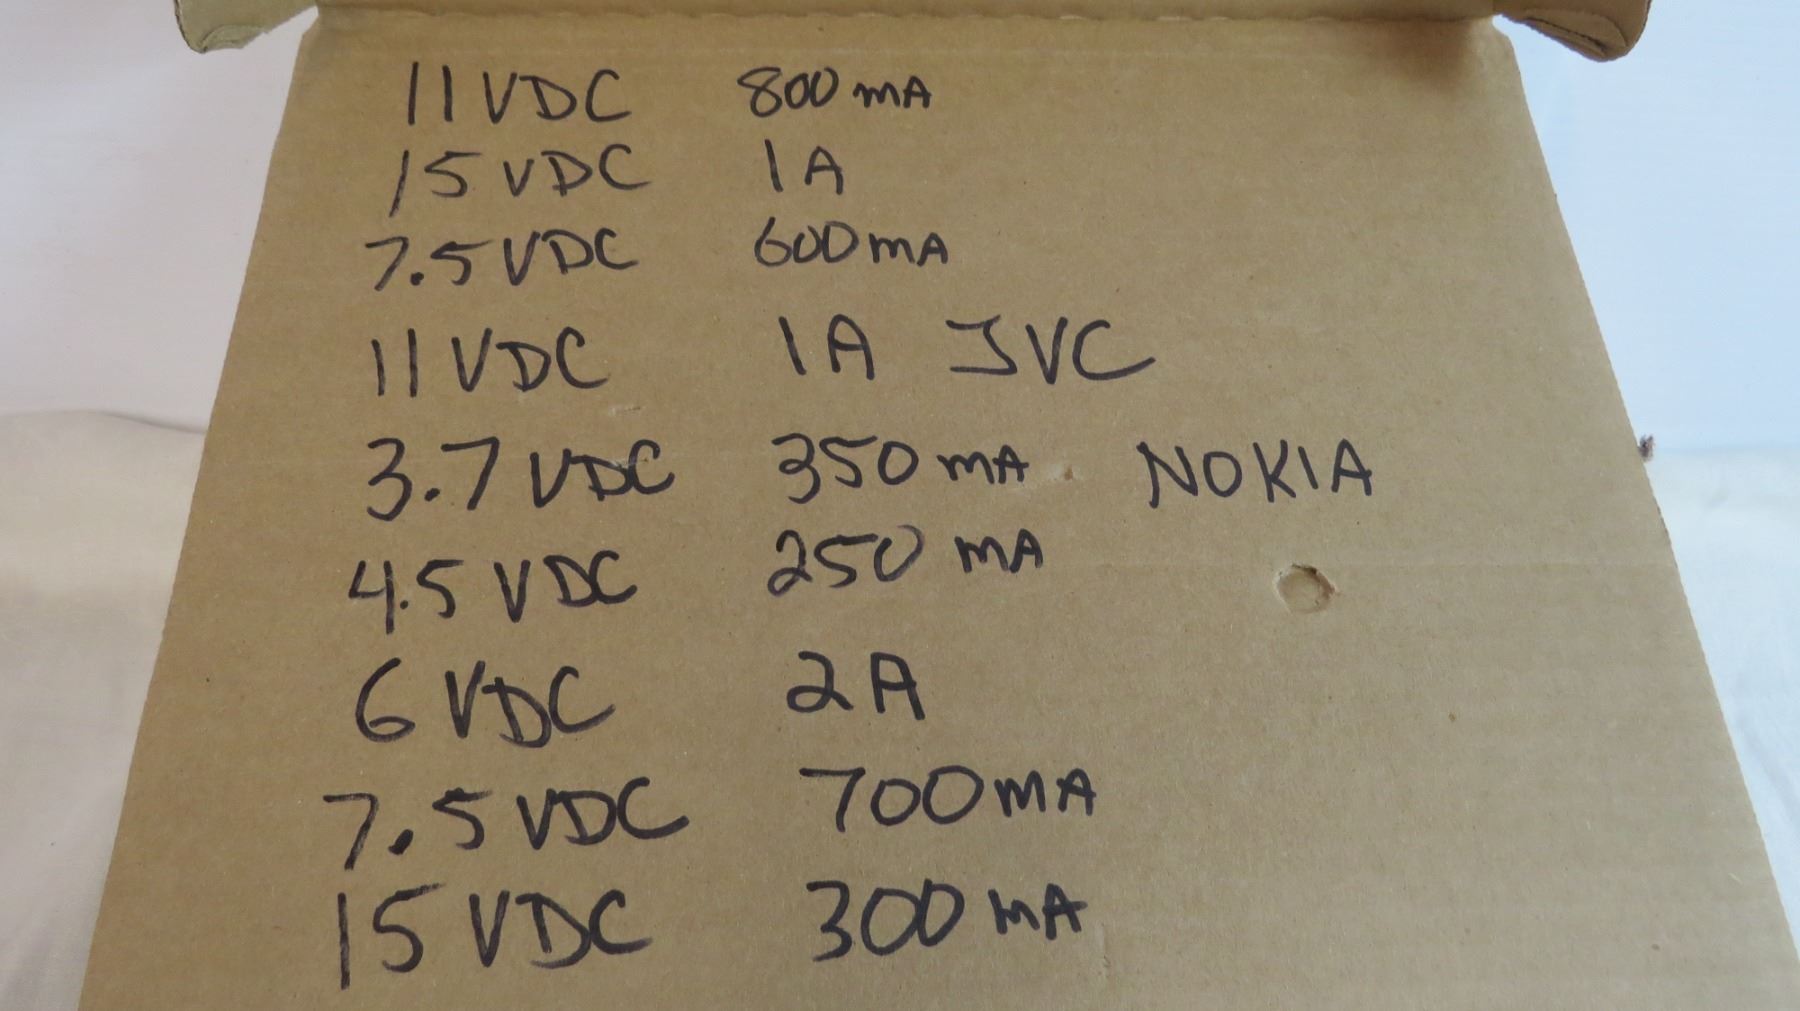 11 VDC 800 mA
15 VDC 1 A
7.5 VDC 600 mA
11 VDC 1A JVC
3.7 VDC 350 mA NOKIA
4.5 VDC 250 mA
6 VDC 2A
7.5 VDC 700 mA
15 VDC 300 mA